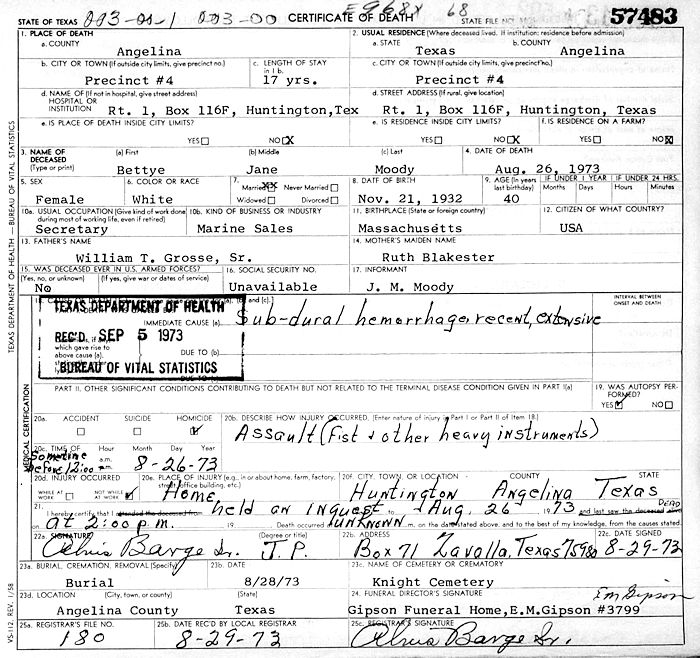 003-00-1 003-00 E968X 68
STATE OF TEXAS CERTIFICATE OF DEATH STATE FILE NO. 57483
1. PLACE OF DEATH 2. USUAL RESIDENCE (Where deceased lived. If institution: residence before admission)
a. COUNTY a. STATE b. COUNTY
Angelina Texas Angelina
b. CITY OR TOWN (If outside city limits, give precinct no.) c. LENGTH OF STAY in 1 b. c. CITY OR TOWN (If outside city limits, give precinct no.)
Precinct #4 17 yrs. Precinct #4
d. NAME OF (If not in hospital, give street address) HOSPITAL OR INSTITUTION d. STREET ADDRESS (If rural, give location)
Rt. 1, Box 116F, Huntington,Tex Rt. 1, Box 116F, Huntington, Texas
e. IS PLACE OF DEATH INSIDE CITY LIMITS? e. IS RESIDENCE INSIDE CITY LIMITS? f. IS RESIDENCE ON A FARM?
YES NO X YES NO X YES NO X
3. NAME OF DECEASED (Type or print) (a) First (b) Middle (c) Last 4. DATE OF DEATH
Bettye Jane Moody Aug. 26, 1973
5. SEX 6. COLOR OR RACE 7. Married XX Never Married Widowed Divorced 8. DATE OF BIRTH 9. AGE (In years last birthday) IF UNDER 1 YEAR Months Days IF UNDER 24 HRS. Hours Minutes
Female White Nov. 21, 1932 40
10a. USUAL OCCUPATION (Give kind of work done during most of working life, even if retired) 10b. KIND OF BUSINESS OR INDUSTRY 11. BIRTHPLACE (State or foreign country) 12. CITIZEN OF WHAT COUNTRY?
Secretary Marine Sales Massachusetts USA
13. FATHER'S NAME 14. MOTHER'S MAIDEN NAME
William T. Grosse, Sr. Ruth Blakester
15. WAS DECEASED EVER IN U.S. ARMED FORCES? (Yes, no, or unknown) (If yes, give war or dates of service) 16. SOCIAL SECURITY NO. 17. INFORMANT
No Unavailable J. M. Moody
INTERVAL BETWEEN ONSET AND DEATH
TEXAS DEPARTMENT OF HEALTH
IMMEDIATE CAUSE (a) Sub-dural hemorrhage, recent, extensive
REC'D SEP 5 1973
which gave rise to above cause (a), DUE TO (b)
BUREAU OF VITAL STATISTICS
DUE TO (c)
PART II. OTHER SIGNIFICANT CONDITIONS CONTRIBUTING TO DEATH BUT NOT RELATED TO THE TERMINAL DISEASE CONDITION GIVEN IN PART I(a) 19. WAS AUTOPSY PERFORMED? YES NO
20a. ACCIDENT SUICIDE HOMICIDE 20b. DESCRIBE HOW INJURY OCCURRED. (Enter nature of injury in Part I or Part II of Item 18.)
Assault (Fist & other heavy instruments)
20c. TIME OF Hour Month Day Year
Sometime before 12:00 a.m. 8-26-73
20d. INJURY OCCURRED WHILE AT WORK NOT WHILE AT WORK 20e. PLACE OF INJURY (e.g., in or about home, farm, factory, street, office building, etc.) 20f. CITY, TOWN, OR LOCATION COUNTY STATE
Home Huntington Angelina Texas
21. I hereby certify that I attended the deceased from held an inquest to Aug. 26 1973 and last saw the deceased alive DEAD
at 2:00 p.m. 19 Death occurred unknown m. on the date stated above; and to the best of my knowledge, from the causes stated.
22a. SIGNATURE (Degree or title) 22b. ADDRESS 22c. DATE SIGNED
Alvis Barge Sr. J.P. Box 71 Zavalla, Texas 75980 8-29-73
23a. BURIAL, CREMATION, REMOVAL (Specify) 23b. DATE 23c. NAME OF CEMETERY OR CREMATORY
Burial 8/28/73 Knight Cemetery
23d. LOCATION (City, town, or county) (State) 24. FUNERAL DIRECTOR'S SIGNATURE Em Gipson
Angelina County Texas Gipson Funeral Home,E.M.Gipson #3799
25a. REGISTRAR'S FILE NO. 25b. DATE REC'D BY LOCAL REGISTRAR 25c. REGISTRAR'S SIGNATURE
180 8-29-73 Alvis Barge Sr.
TEXAS DEPARTMENT OF HEALTH — BUREAU OF VITAL STATISTICS
MEDICAL CERTIFICATION
VS-112, REV. 1/58